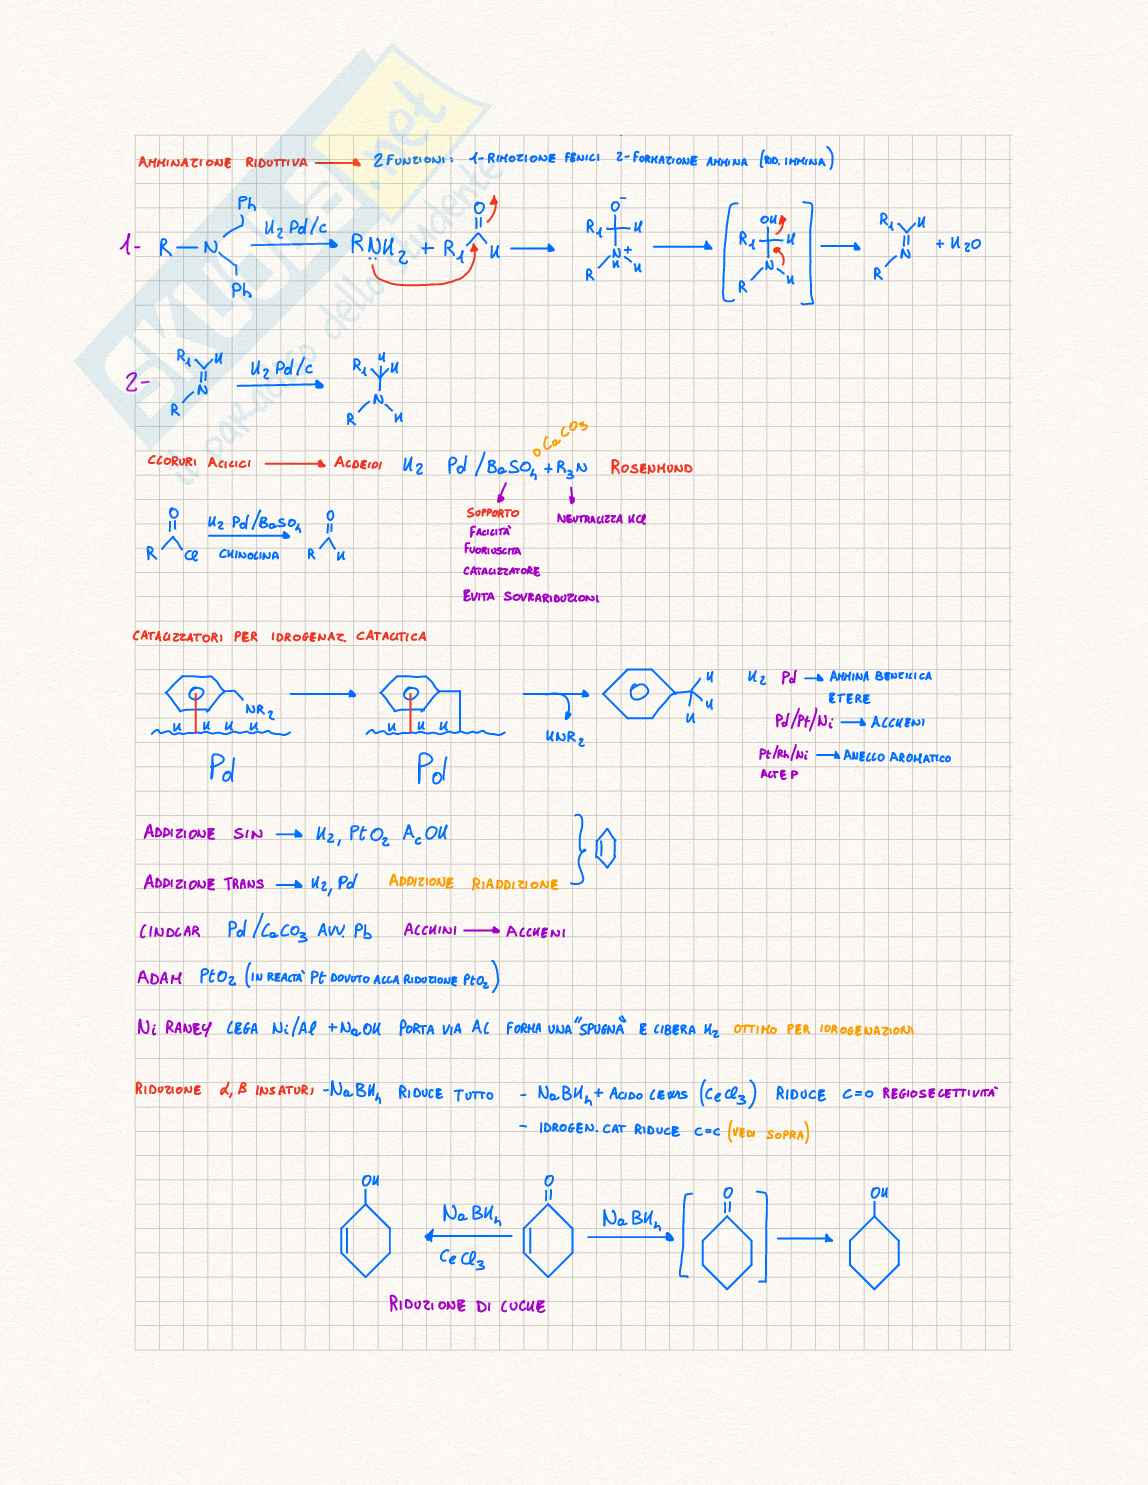 AMMINAZIONE RIDUTTIVA → 2 FUNZIONI: 1-RIMOZIONE FENILI 2-FORMAZIONE AMMINA (RID. IMMINA)
1- R-N Ph Ph H2 Pd/C RNH2 + R1 O H O⁻ R1 H N⁺ H H R OH R1 H N R H R1 H N R + H2O
2- R1 H N R H2 Pd/C R1 H H N R H
CLORURI ACILICI → ALDEIDI H2 Pd/BaSO4 + R3N ROSENMUND
o CaCO3
SUPPORTO
FACILITÀ
FUORIUSCITA
CATALIZZATORE
EVITA SOVRARIDUZIONI
NEUTRALIZZA HCl
O R Cl H2 Pd/BaSO4 CHINOLINA O R H
CATALIZZATORI PER IDROGENAZ. CATALITICA
NR2 H H H H Pd
H H H Pd
HNR2
H H H
H2 Pd → AMMINA BENZILICA
ETERE
Pd/Pt/Ni → ALCHENI
Pt/Rh/Ni → ANELLO AROMATICO
ALTE P
ADDIZIONE SIN → H2, PtO2 AcOH
ADDIZIONE TRANS → H2, Pd ADDIZIONE RIADDIZIONE
LINDLAR Pd/CaCO3 AVV. Pb ALCHINI → ALCHENI
ADAM PtO2 (IN REALTA' Pt DOVUTO ALLA RIDUZIONE PtO2)
Ni RANEY LEGA Ni/Al + NaOH PORTA VIA AL FORMA UNA "SPUGNA" E LIBERA H2 OTTIMO PER IDROGENAZIONI
RIDUZIONE α,β INSATURI -NaBH4 RIDUCE TUTTO - NaBH4 + ACIDO LEWIS (CeCl3) RIDUCE C=O REGIOSELETTIVITÀ
- IDROGEN. CAT RIDUCE C=C (VEDI SOPRA)
OH NaBH4 CeCl3 O NaBH4 O OH
RIDUZIONE DI LUCHE
SKUOLA.net
il paradiso dello studente